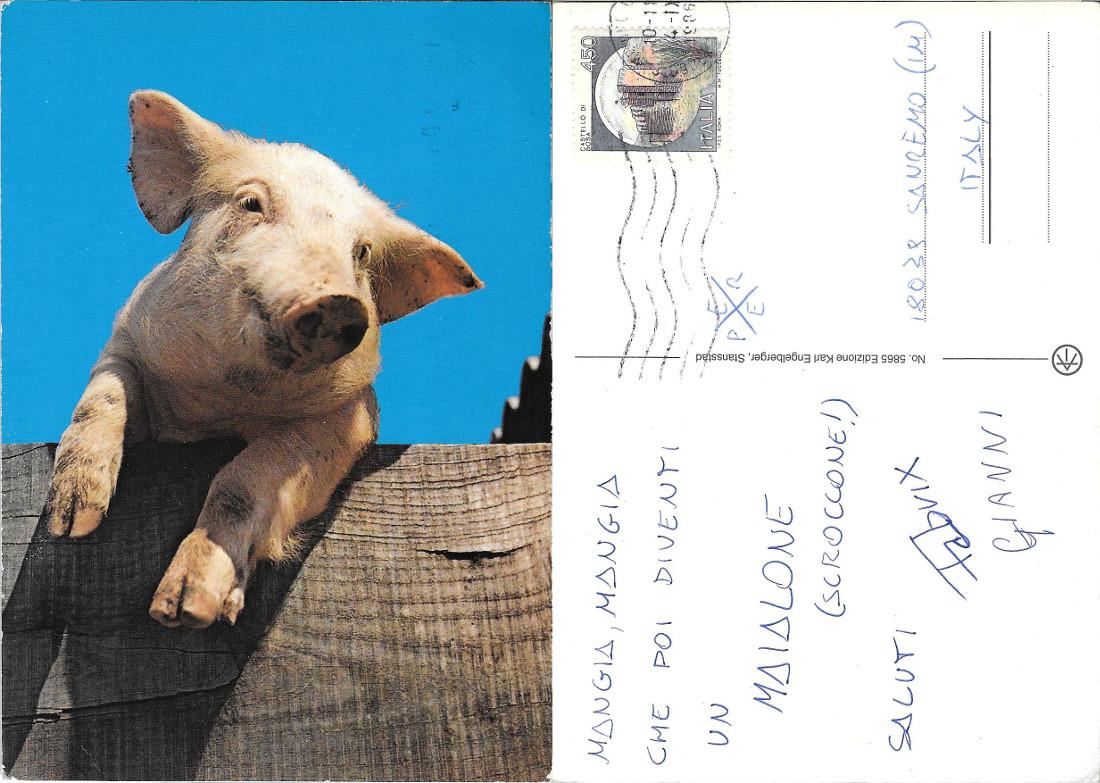 MANGIA, MANGIA
CHE POI DIVENTI
UN
MAIALONE
(SCROCCONE!)
SALUTI
GIANNI
No. 5865 Edizione Karl Engelberger, Stansstad
PER
E
450
CASTELLO DI
BOSA
ITALIA
18038 SANREMO (IM)
ITALY